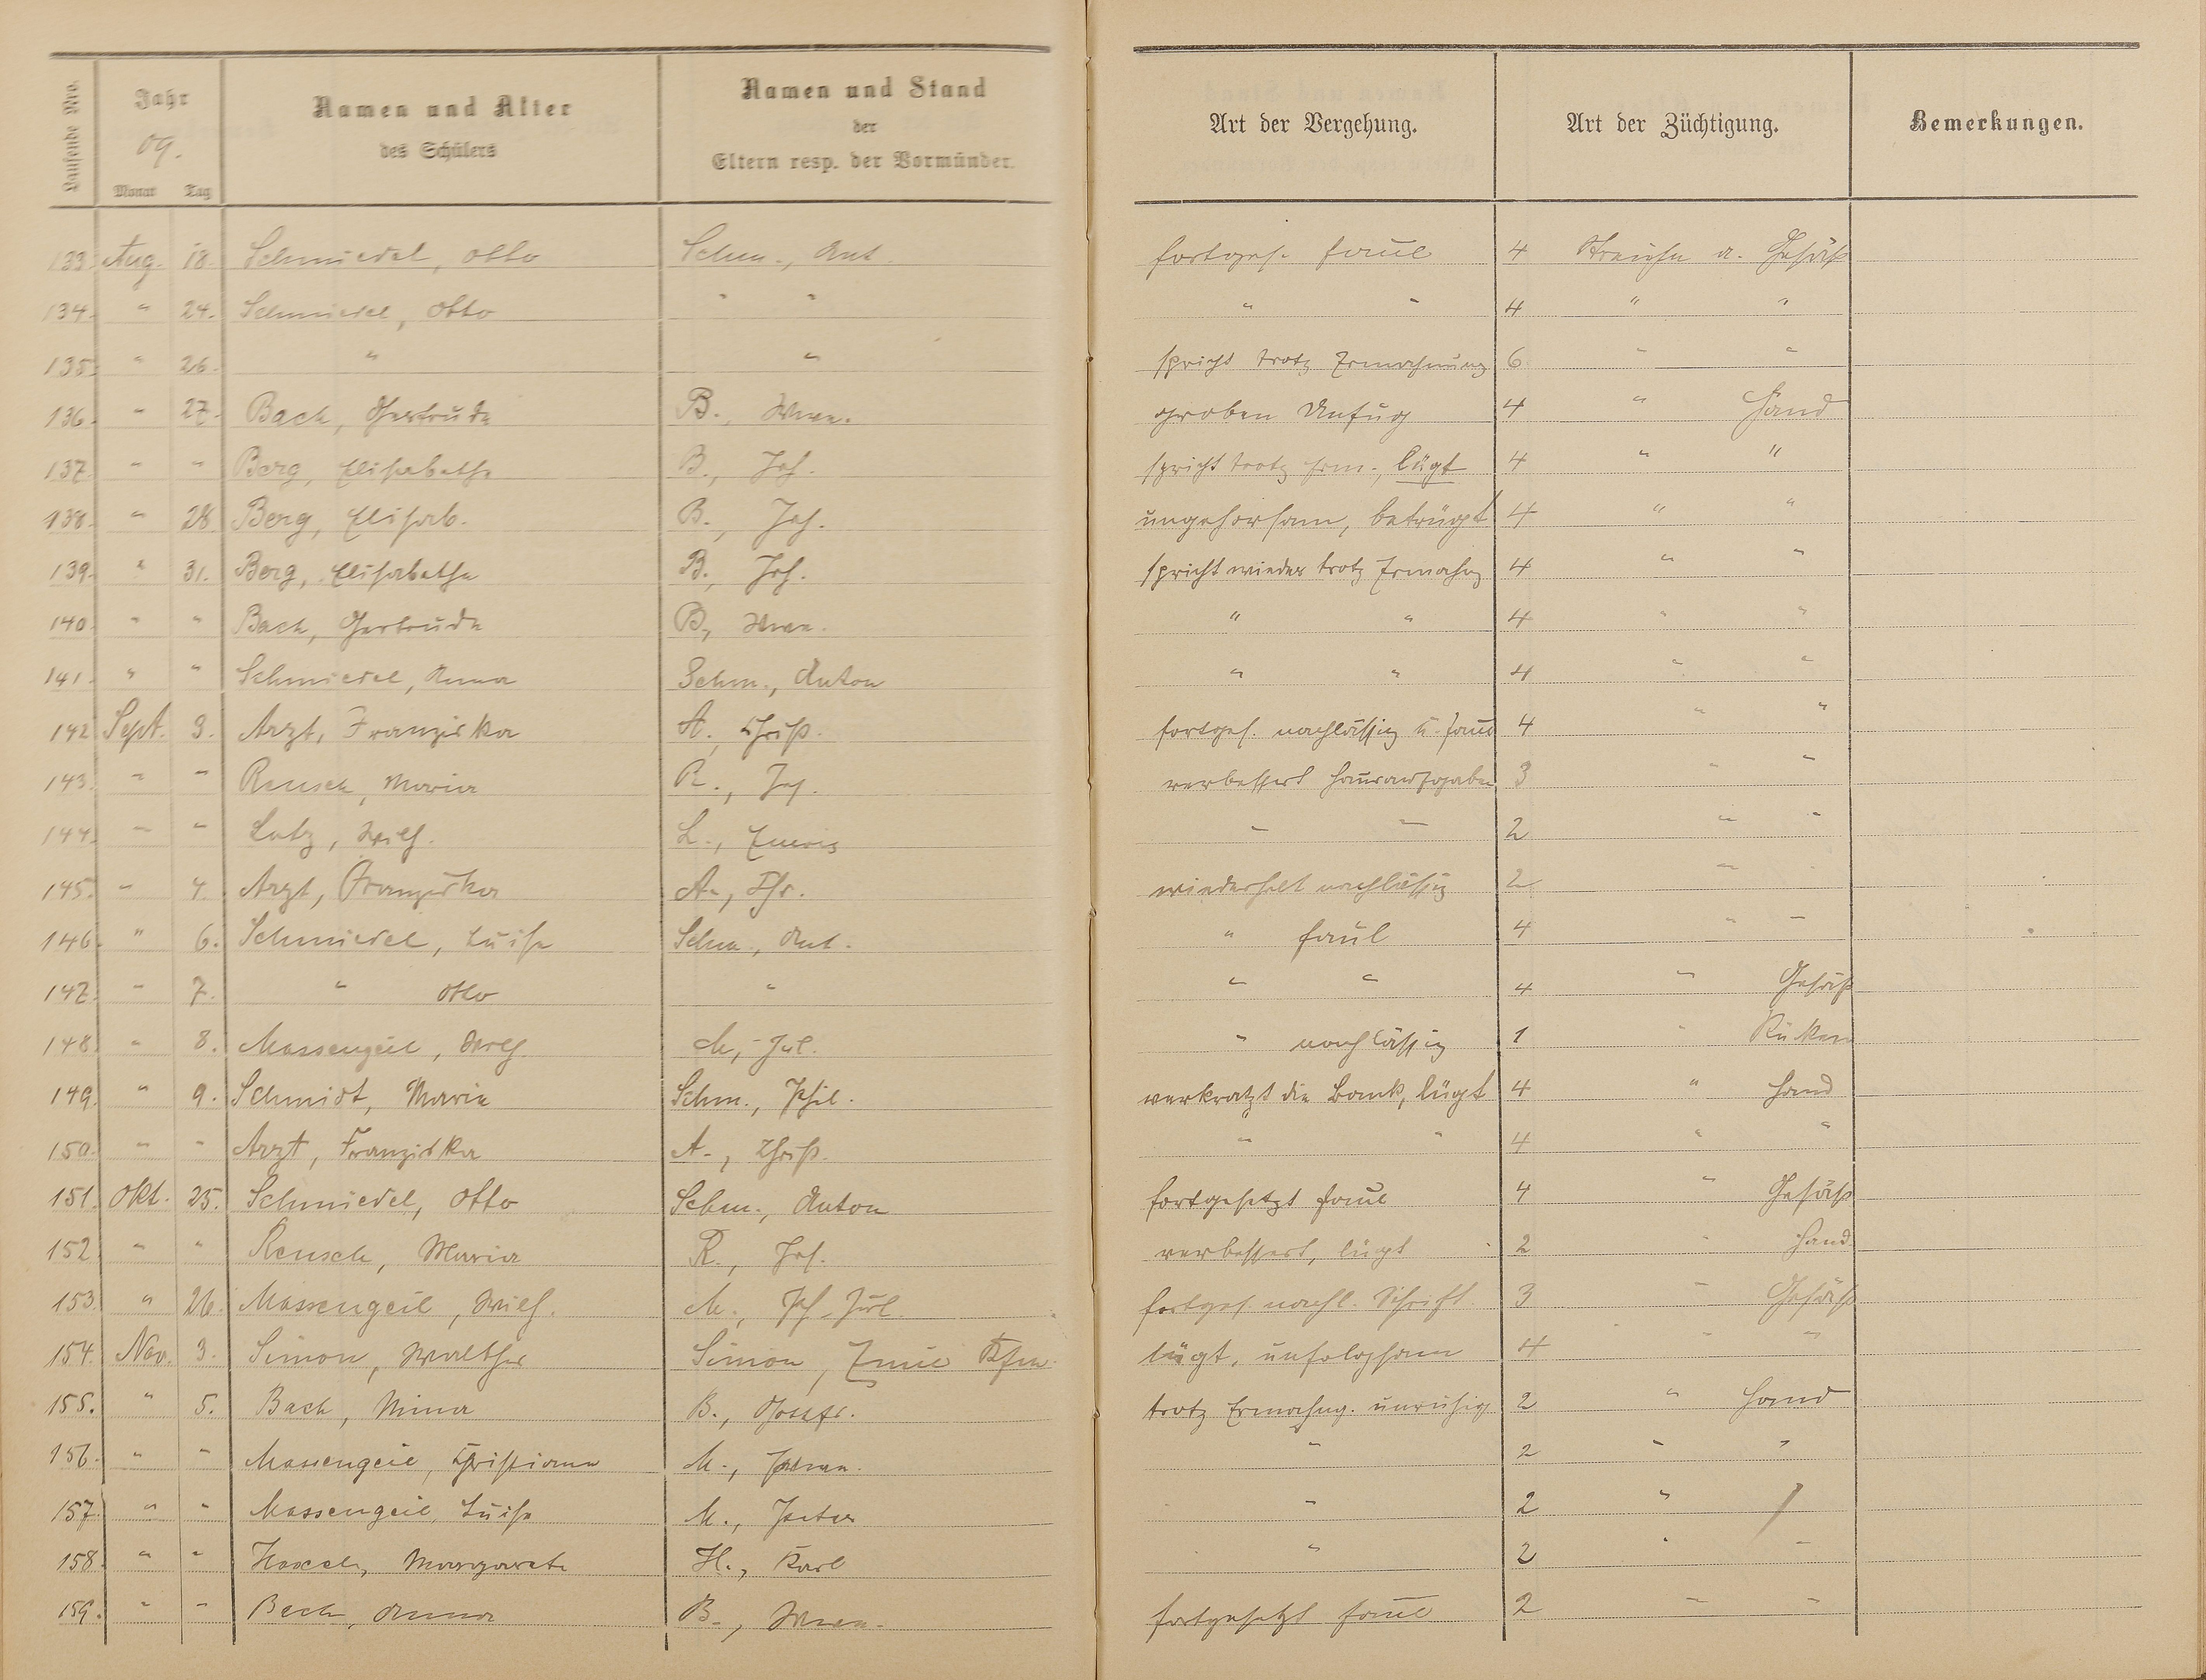 Laufende Nro.
Jahr
09.
Monat Tag
Namen und Alter
des Schülers
Namen und Stand
der
Eltern resp. der Vormünder.
Art der Vergehung.
Art der Züchtigung.
Bemerkungen.
133. Aug. 18. Schmiedel, Otto Schm., Ant. fortges. faul 4 Streiche a. Gesäß
134. " 24. Schmiedel, Otto " " " " 4 " "
135. " 26. " " spricht trotz Ermahnung 6 " "
136. " 27. Bach, Gertrude B., groben Unfug 4 " Hand
137. " " Berg, Elisabetha B., Joh. spricht trotz Erm., lügt 4 " "
138. " 28. Berg, Elisab. B., Joh. ungehorsam, betrügt 4 " "
139. " 31. Berg, Elisabetha B., Joh. spricht wieder trotz Ermahng 4 " "
140. " " Bach, Gertrude B., " " 4 " "
141. " " Schmiedel, Anna Schm., Anton " " 4 " "
142. Sept. 3. Arzt, Franziska A., Christ. fortges. nachlässig u. faul 4 " "
143. " " Reusch, Maria R., Jos. verbessert Hausaufgaben 3 " "
144. " " Lotz, Wilh. L., " " 2 " "
145. " 4. Arzt, Franziska A., Chr. wiederholt nachlässig 2 "
146. " 6. Schmiedel, Luise Schm., Ant. " faul 4 " "
147. " 7. " Otto " " " 4 " Gesäß
148. " 8. Massengeil, Wilh. M., Jul. " nachlässig 1 " Rücken
149. " 9. Schmidt, Maria Schm., Phil. verkratzt die Bank, lügt 4 " Hand
150. " " Arzt, Franziska A., Christ. " " 4 " "
151. Okt. 25. Schmiedel, Otto Schm., Anton fortgesetzt faul 4 " Gesäß
152. " " Reusch, Maria R., Jos. verbessert, lügt 2 " Hand
153. " 26. Massengeil, Wilh. M., Ph. Jul. fortges. nachl. Schrift 3 " Gesäß
154. Nov. 3. Simon, Walther Simon, Emil Kfm. lügt, unfolgsam 4 " "
155. " 5. Bach, Minna B., trotz Ermahng. unruhig 2 " Hand
156. " " Massengeil, Christiane M., " 2 " "
157. " " Massengeil, Luise M., Peter " 2 " "
158. " " Margarete H., Karl " 2 " "
159. " " Bach, Anna B., fortgesetzt faul 2 " "